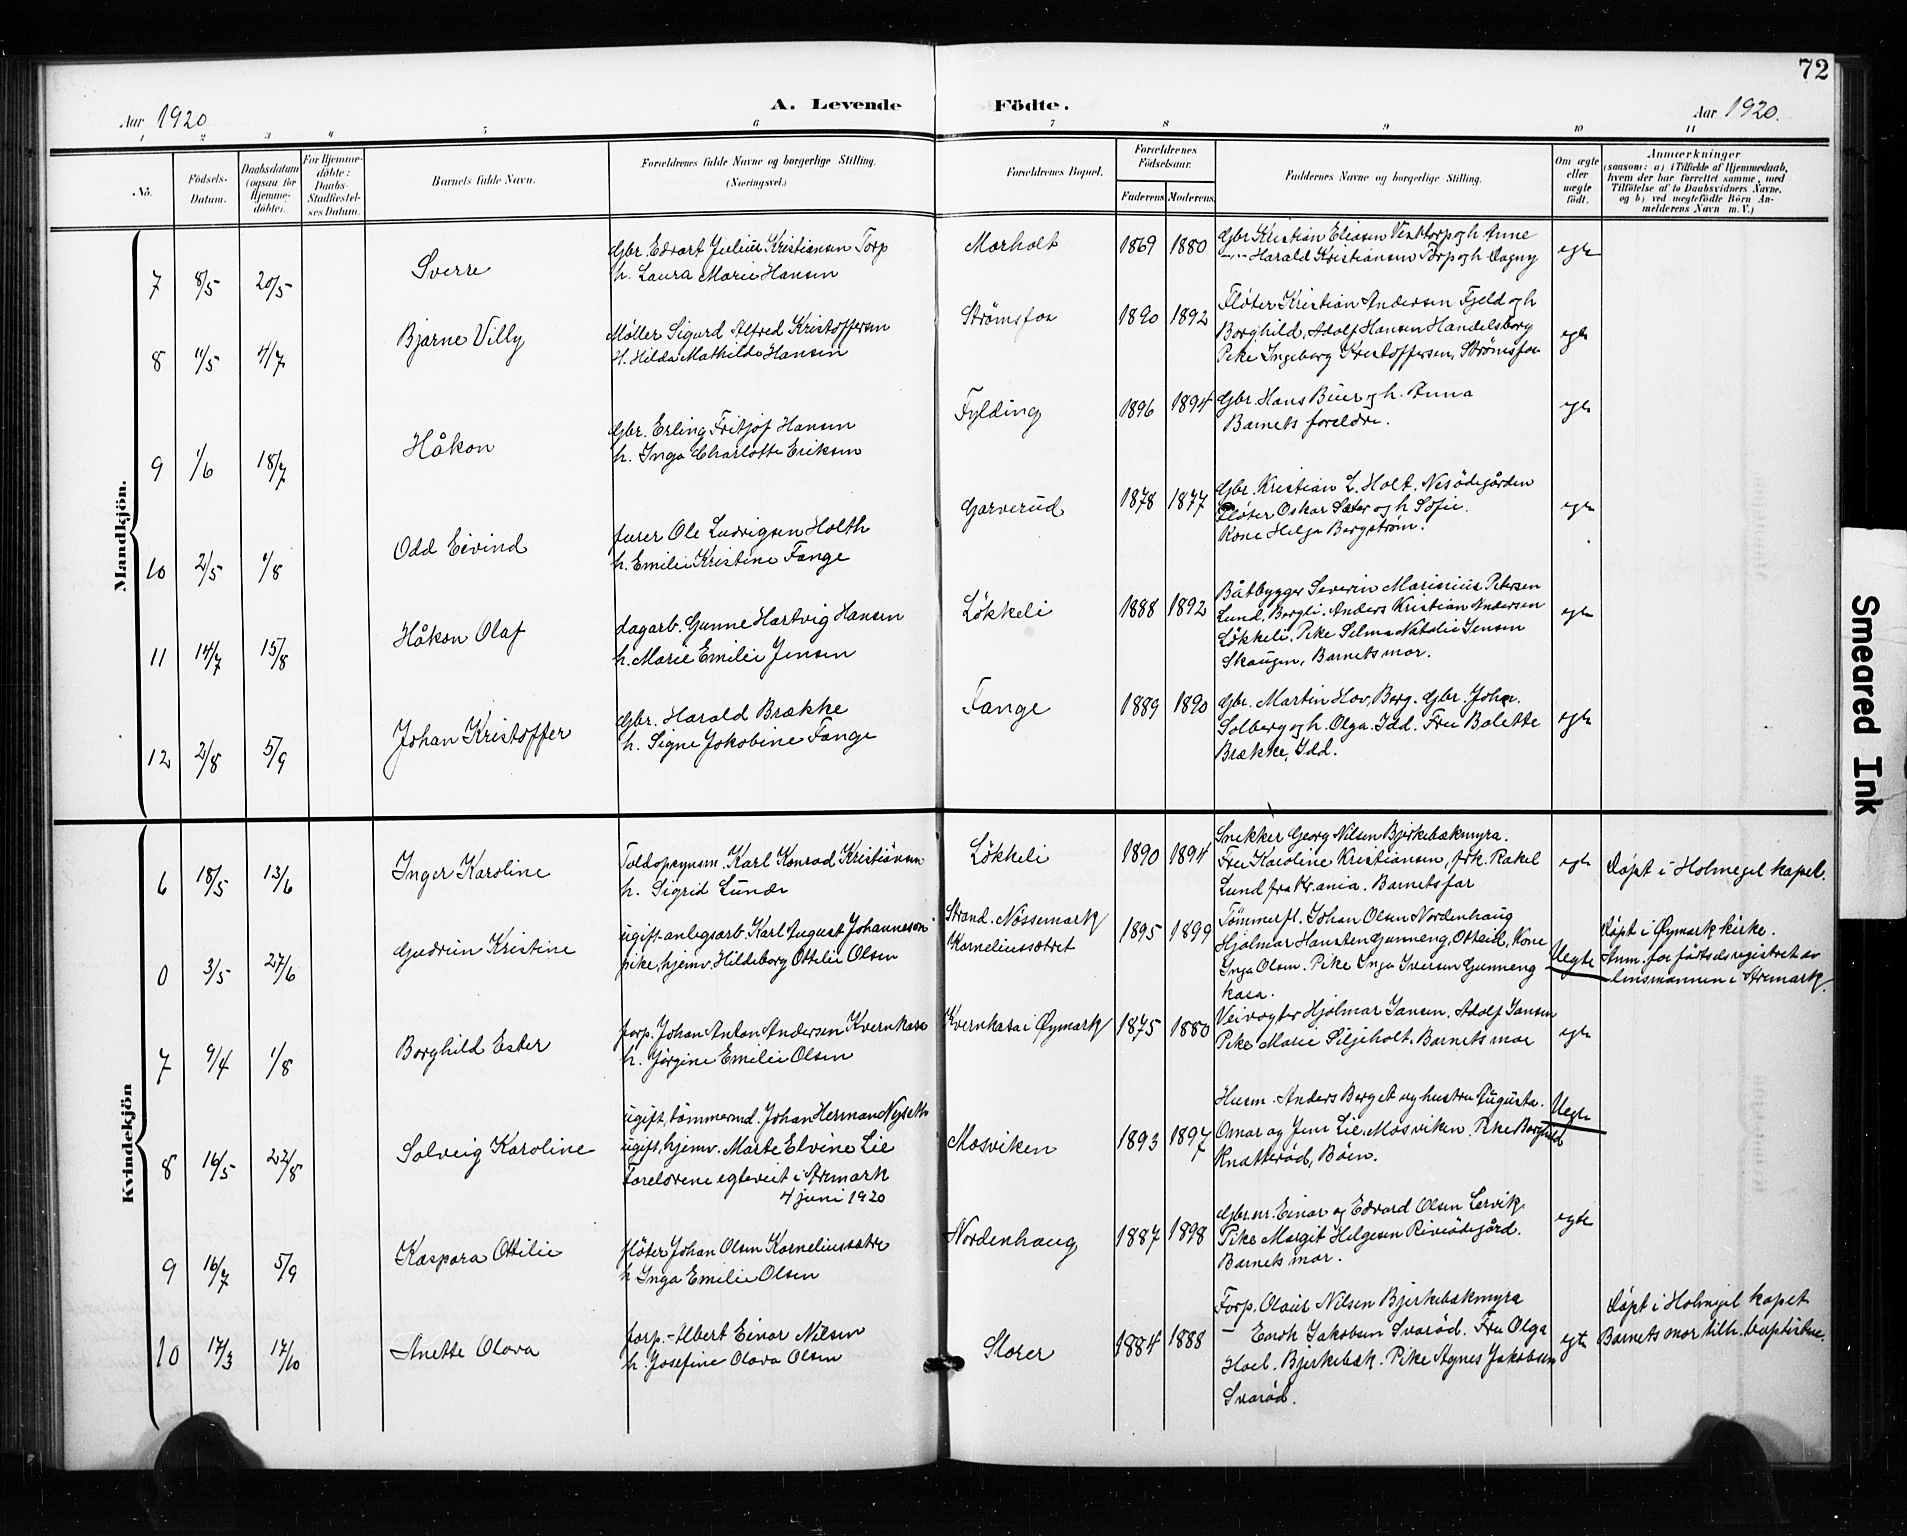 72
A. Levende Födte.
Aar 1920
Aar 1920.
1 2 3 4 5 6 7 8 9 10 11
No.
Födsels-Datum.
Daabsdatum (ogsaa for Hjemme-döbte).
For Hjemme-döbte: Daabs-Stadfæstel-ses Datum.
Barnets fulde Navn.
Forældrenes fulde Navne og borgerlige Stilling.
(Næringsvei.)
Forældrenes Bopæl.
Forældrenes Födselsaar.
Faderens Moderens
Faddernes Navne og borgerlige Stilling.
Om ægte eller uægte födt.
Anmærkninger
(saasom: a) i Tilfælde af Hjemmedaab, hvem der har forrettet samme, med Tilföielse af to Daabsvidners Navne, og b) ved uægtefödte Börn An-melderens Navn m. V.)
Mandkjön.
7 8/5 20/5 Sverre
Gbr. Edvart Julius Kristiansen Torp
h. Laura Marie Hansen
Marholt 1869 1880
Gbr Kristian Eliasen Visttorp og h. Anne
—"— Harald Kristiansen Torp og h. Dagny
egte
8 11/5 4/7 Bjarne Villy
Møller Sigurd Alfred Kristoffersen
H. Hilda Mathilde Hansen
Strømsfos 1890 1892
Fløter Kristian Andersen Fjeld og h
Borghild, Adolf Hansen Handelsborg
Pike Ingeborg Kristoffersen, Strømsfos
egte
9 1/6 18/7 Håkon
Gbr. Erling Fritjof Hansen
h. Inga Charlotte Eriksen
Fylding 1896 1894
Gbr. Hans Buer og h. Anna
Barnets foreldre.
egte
10 2/5 1/8 Odd Eivind
furer Ole Ludvigsen Holth
h. Emilie Kristine Fange
Garverud 1878 1877
Gbr. Kristian L. Holt. Nesødegården
Fløter Oskar Sæter og h Sofie.
Kone Helga Bergstrøm.
egte
11 14/7 15/8 Håkon Olaf
dagarb. Gunne Hartvig Hansen
h. Marie Emilie Jensen
Løkkeli 1888 1892
Båtbygger Severin Marinius Petersen
Lund, Bergli. Anders Kristian Andersen
Løkkeli. Pike Selma Natalie Jensen
Skaugen, Barnets mor.
egte
12 2/8 5/9 Johan Kristoffer
Gbr. Harald Brække
h. Signe Jakobine Fange
Fange 1889 1890
Gbr. Martin Hov, Berg. Gbr. John.
Solberg og h. Olga. Idd. Fru Bolette
Brække, Idd.
egte
Kvindekjön
6 18/5 13/6 Inger Karoline
Toldopsynsm. Karl Konrad Kristiansen
h. Sigrid Lunde
Løkkeli 1890 1894
Snekker Georg Nilsen Bjerkebækmyra.
Fru Karoline Kristiansen, frk. Rakel
Lund fra Kr.ania. Barnets far
egte
Døpt i Holmegil kapel.
0 3/5 27/6 Gudrun Kristine
ugift anlegsarb. Karl August Johannesson
pike, hjemv. Hildeborg Ottilie Olsen
Strand. Nøssemark
Korneliussætret
1895 1899
Tømmerfl. Johan Olsen Nordenhaug
Hjalmar Hansten Gunneng, Otteid, Kone
Inga Olsen. Pike Inga Iversen Gunneng
kasa.
Uegte
Døpt i Øymark kirke.
Anm. for fødselsregistret av
lensmannen i Aremark.
7 9/4 1/8 Borghild Ester
forp. Johan Anton Andersen Kvernkasa
h. Jørgine Emilie Olsen
Kvernkasa i Øymark 1875 1880
Veivogter Hjalmar Jansen. Adolf Jansen
Pike Marie Siljeholt. Barnets mor
egte
8 16/5 22/8 Solveig Karoline
ugift, tømmermd. Johan Herman Nyseth
ugift, hjemv. Marte Elvine Lie
Foreldrene egteviet i Aremark
4 juni 1920
Mosviken 1893 1897
Husm. Anders Berget og hustru Augusta.
Omar og Jens Lie, Mosviken. Pike Borghild
Knatterød, Bøen.
Uegte
9 16/7 5/9 Kaspara Ottilie
fløter Johan Olsen Korneliussætre
h Inga Emilie Olsen
Nordenhaug 1887 1898
Gbr.nr. Einar og Edvard Olsen Lervik
Pike Margit Helgesen Riviødegård.
Barnets mor.
egte
10 17/3 17/10 Anette Olava
forp. Albert Einar Nilsen
h. Josefine Olava Olsen
Storer 1884 1888
Forp. Olaus Nilsen Bjerkebækmyra
— Emil Jakobsen Svarød. Fru Olga
Hoel. Bjerkebæk. Pike Agnes Jakobsen
Svarød.
egte
Døpt i Holmgil kapel
Barnets mor tilh. baptistene.
Smeared Ink